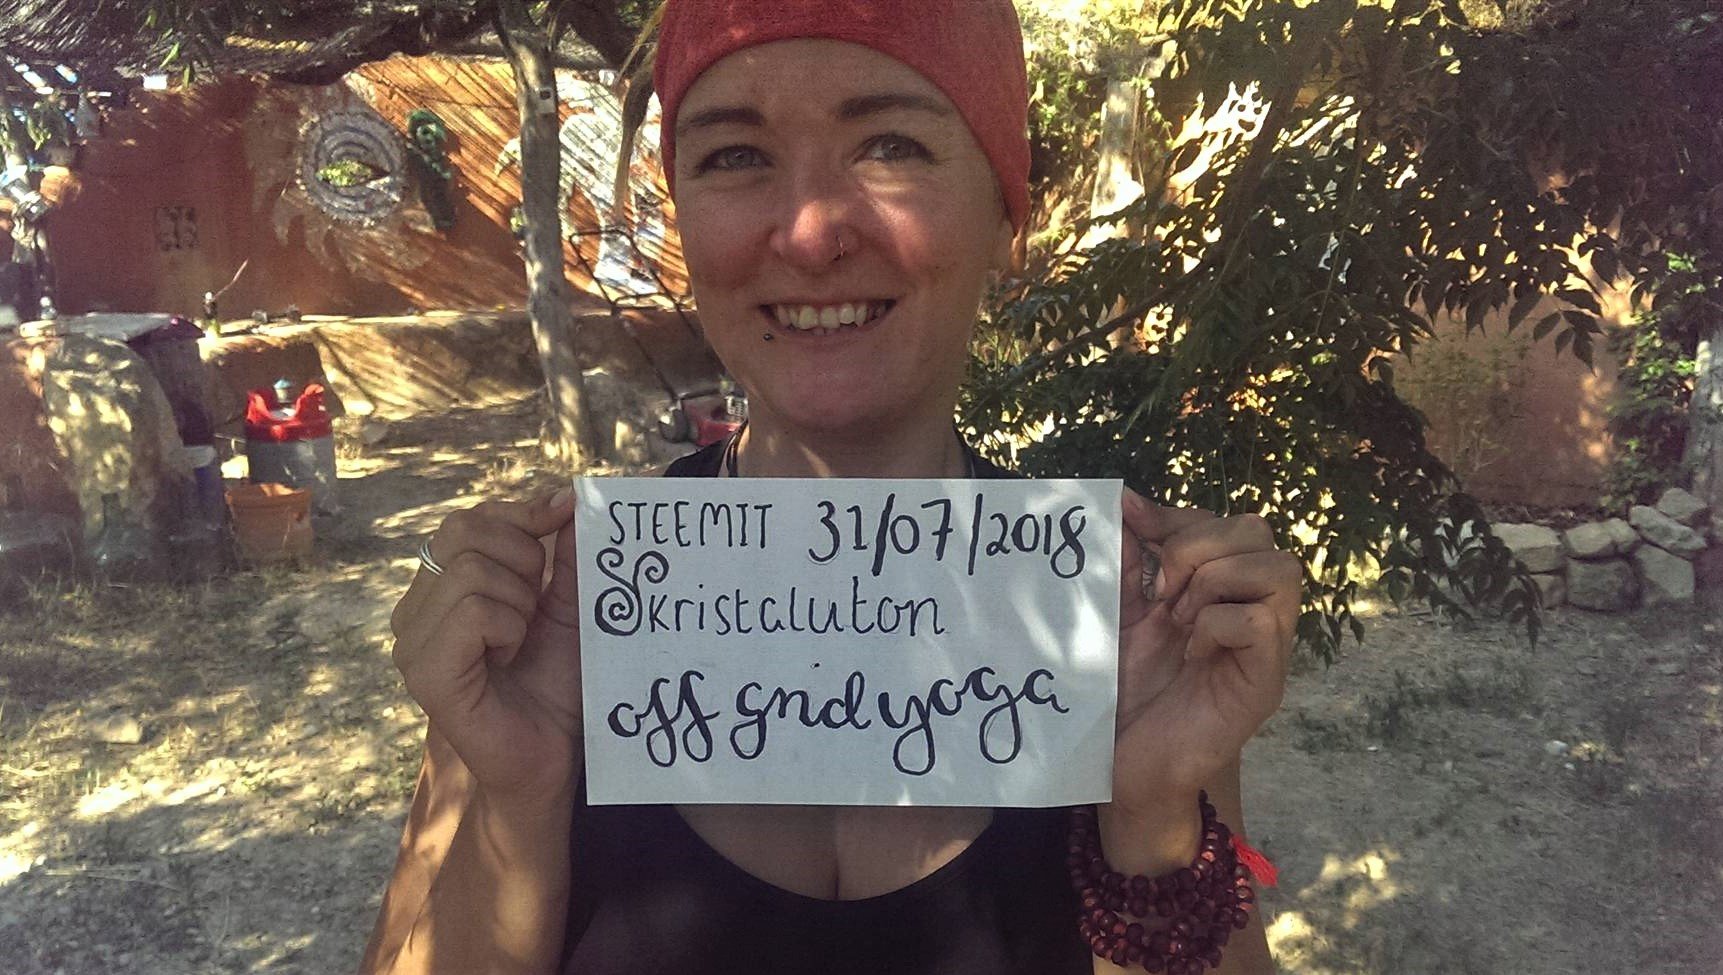 STEEMIT 31/07/2018
kristaluton
off grid yoga